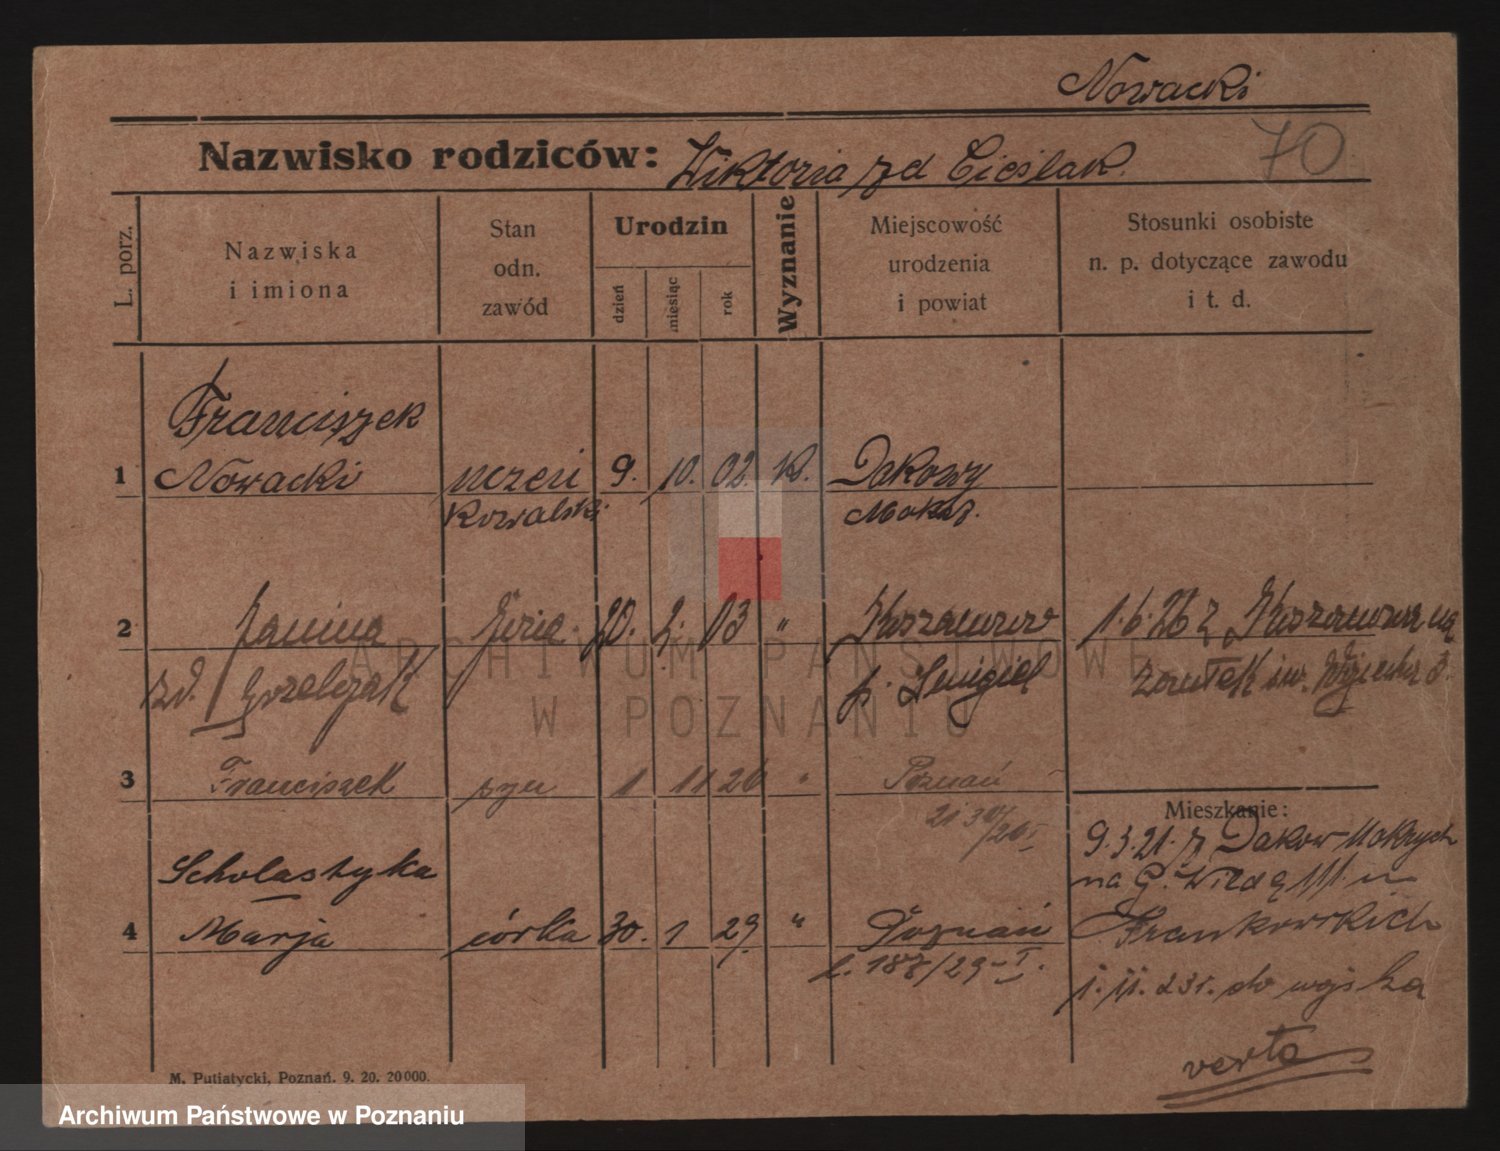 Nowacki
Nazwisko rodziców: Wiktoria zd Cieślak.
70
L. porz.
Nazwiska
i imiona
Stan
odn.
zawód
Urodzin
dzień
miesiąc
rok
Wyznanie
Miejscowość
urodzenia
i powiat
Stosunki osobiste
n. p. dotyczące zawodu
i t. d.
Franciszek
1 Nowacki uczeń 9. 10. 02. K. Dakowy
Kowalski Mokrz.
2 Janina żona 20. 2. 03 " 1.6.26 z
zd. Grzelczak p. zaułek św. Wojciecha 3.
3 Franciszek syn 1 11 26 " Poznań
Mieszkanie:
9.3.21. z Dakow-Mokrych
Scholastyka na G. Wildę
4 Marja córka 30. 1 29 " Poznań Frankowskich
l. 187/29-I.
1. 11. 23r. do wojska
verte
M. Putiatycki, Poznań. 9. 20. 20000.
ARCHIWUM PAŃSTWOWE
W POZNANIU
Archiwum Państwowe w Poznaniu